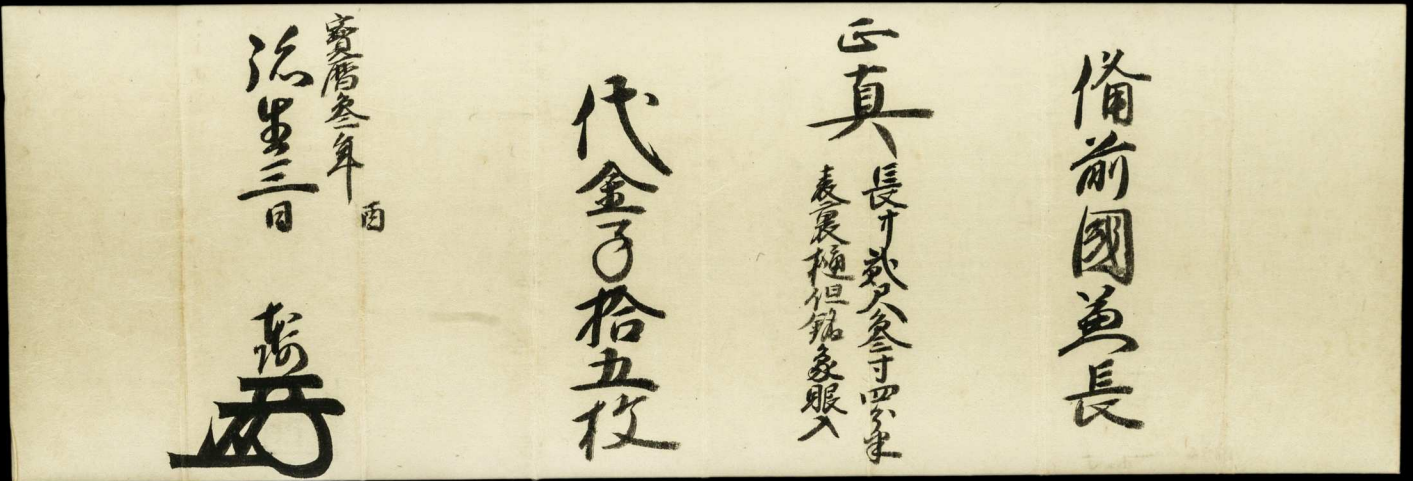 備前國兼長
正真
長サ貳尺叁寸四分半
表裏樋但銘象眼入
代金子拾五枚
寶暦叁年
酉
弥生三日
本阿